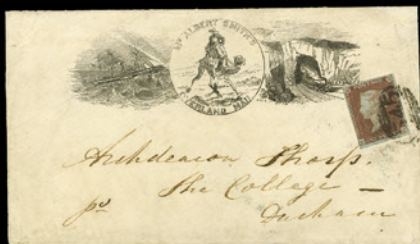 MR ALBERT SMITH'S
OVERLAND MAIL
Archdeacon Thorp.
The College –
Durham